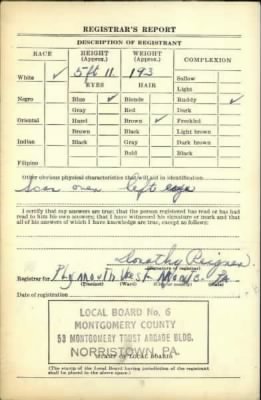 REGISTRAR'S REPORT
DESCRIPTION OF REGISTRANT
RACE HEIGHT (Approx.) WEIGHT (Approx.) COMPLEXION
White ✓ 5 ft 11 193 Sallow
EYES HAIR Light
Negro Blue ✓ Blonde Ruddy ✓
Gray Red Dark
Oriental Hazel Brown ✓ Freckled
Brown Black Light brown
Indian Black Gray Dark brown
Bald Black
Filipino
Other obvious physical characteristics that will aid in identification
Scar over left eye
I certify that my answers are true; that the person registered has read or has had read to him his own answers; that I have witnessed his signature or mark and that all of his answers of which I have knowledge are true, except as follows:
Dorothy
(Signature of registrar)
Registrar for Plymouth West Pa.
(Precinct) (Ward) (City or county) (State)
Date of registration
LOCAL BOARD No. 6
MONTGOMERY COUNTY
53 MONTGOMERY TRUST ARCADE BLDG.
NORRISTOWN, PA.
(STAMP OF LOCAL BOARD)
(The stamp of the Local Board having jurisdiction of the registrant
shall be placed in the above space.)